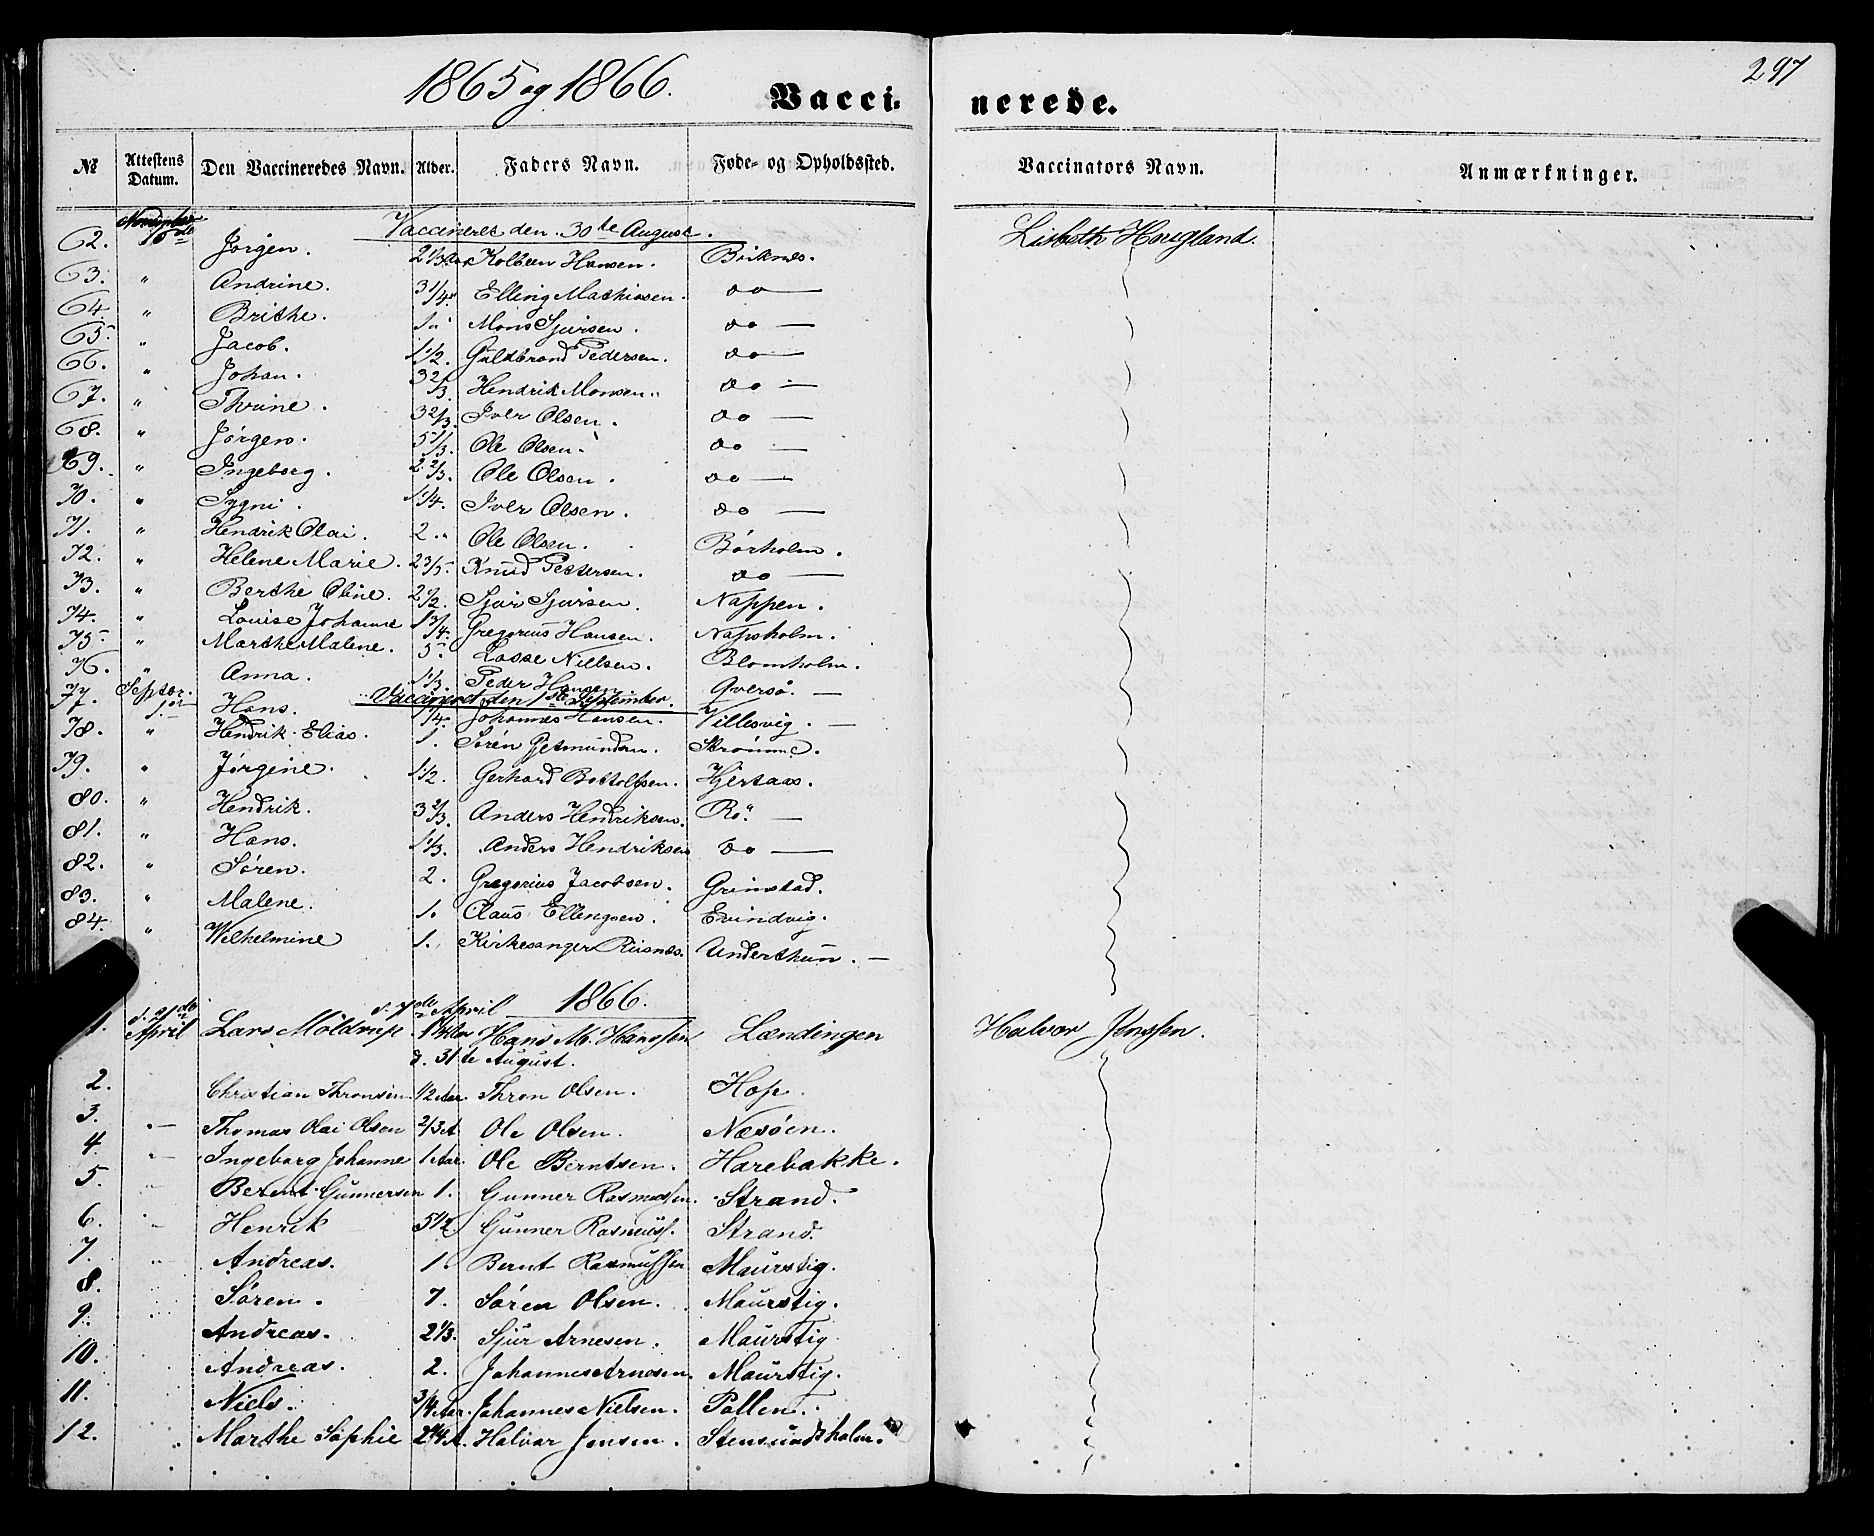 1865 og 1866.
Vacci- nerede.
297
№ Attestens Datum. Den Vaccineredes Navn. Alder. Faders Navn. Føde- og Opholdssted. Vaccinators Navn. Anmærkninger.
Vaccineret den 30te August.
62. Jörgen. 2 1/3 Kolbein Hansen. Birknes. Lisbeth Hougland.
63. " Andrine. 3 1/4 Elling Mathiasen. do —
64. " Brithe. 1 " Mons Sjursen. do —
65. " Jacob. 1 1/2. Guldbrand Pedersen. do —
66. " Johan. 3 2/3. Hendrik Monsen. do —
67. " Thrine. 3 2/3. Iver Olsen. do —
68. " Jörgen. 5 1/3. Ole Olsen. do —
69. " Ingeborg. 2 2/3. Ole Olsen. do —
70. " Sygni. 1 1/4. Iver Olsen. do —
71. " Hendrik Olai. 2 " Ole Olsen. Börholm.
72. " Helene Marie. 2 3/5. Knud Pettersen. do —
73. " Berthe Oline. 2 1/2. Sjur Sjursen. Nappen.
74. " Louise Johanne 1 3/4. Gregorius Hansen. Napsholm.
75. " Marthe Malene. 5. Lasse Nielsen. Blomholm.
76. " Anna. 1 1/3. Peder Hansen. Qversö. —
Vaccineret den 1ste September.
77. Septbr. 1. Hans. 1/4. Johannes Hansen. Villesvig. —
78. " Hendrik Elias. 1. Sören Gjetmundsen. Strömme.
79. " Jörgine. 1 1/2. Gerhard Bottolfsen. Hjertaas.
80. " Hendrik. 3 2/3. Anders Hendriksen. Rö. —
81. " Hans. 1 1/3. Anders Hendriksen do —
82. " Sören. 2. Gregorius Jacobsen. Grimstad.
83. " Malene. 1. Claus Ellingsen. Evindvig.
84. " Wilhelmine 1. Kirkesanger Riisnes. Underthun. —
1866.
d. 7de April
1. d. 21de April Lars Möldrup 1 Hans M. Hanssen Lændingen Halvor Jenssen.
d. 31te August.
2. Christian Thronsen 1/2 Aar. Thron Olsen. Hop.
3. — Thomas Olai Olsen 2/3 A Ole Olsen. Næsöen.
4. — Ingeborg Johanne 1 Aar. Ole Berntsen. Harebakke.
5. " Berent Gunnersen 1. Gunner Rasmussen. Strand.
6. " Henrik 5 1/2 Gunner Rasmuss. Strand.
7. " Andreas. 1. Bernt Rasmussen Maurstig.
8. Sören. 7. Sören Olsen. Maurstig.
9. Andreas. 2 1/3. Sjur Arnesen. Maurstig.
10. Andreas. 2. Johannes Arnesen. Maurstig.
11. Niels. 3/4 Aar. Johannes Nielsen. Pollen.
12. " Marthe Sophie 2 1/4 A. Halvor Jensen. Stensundsholm.